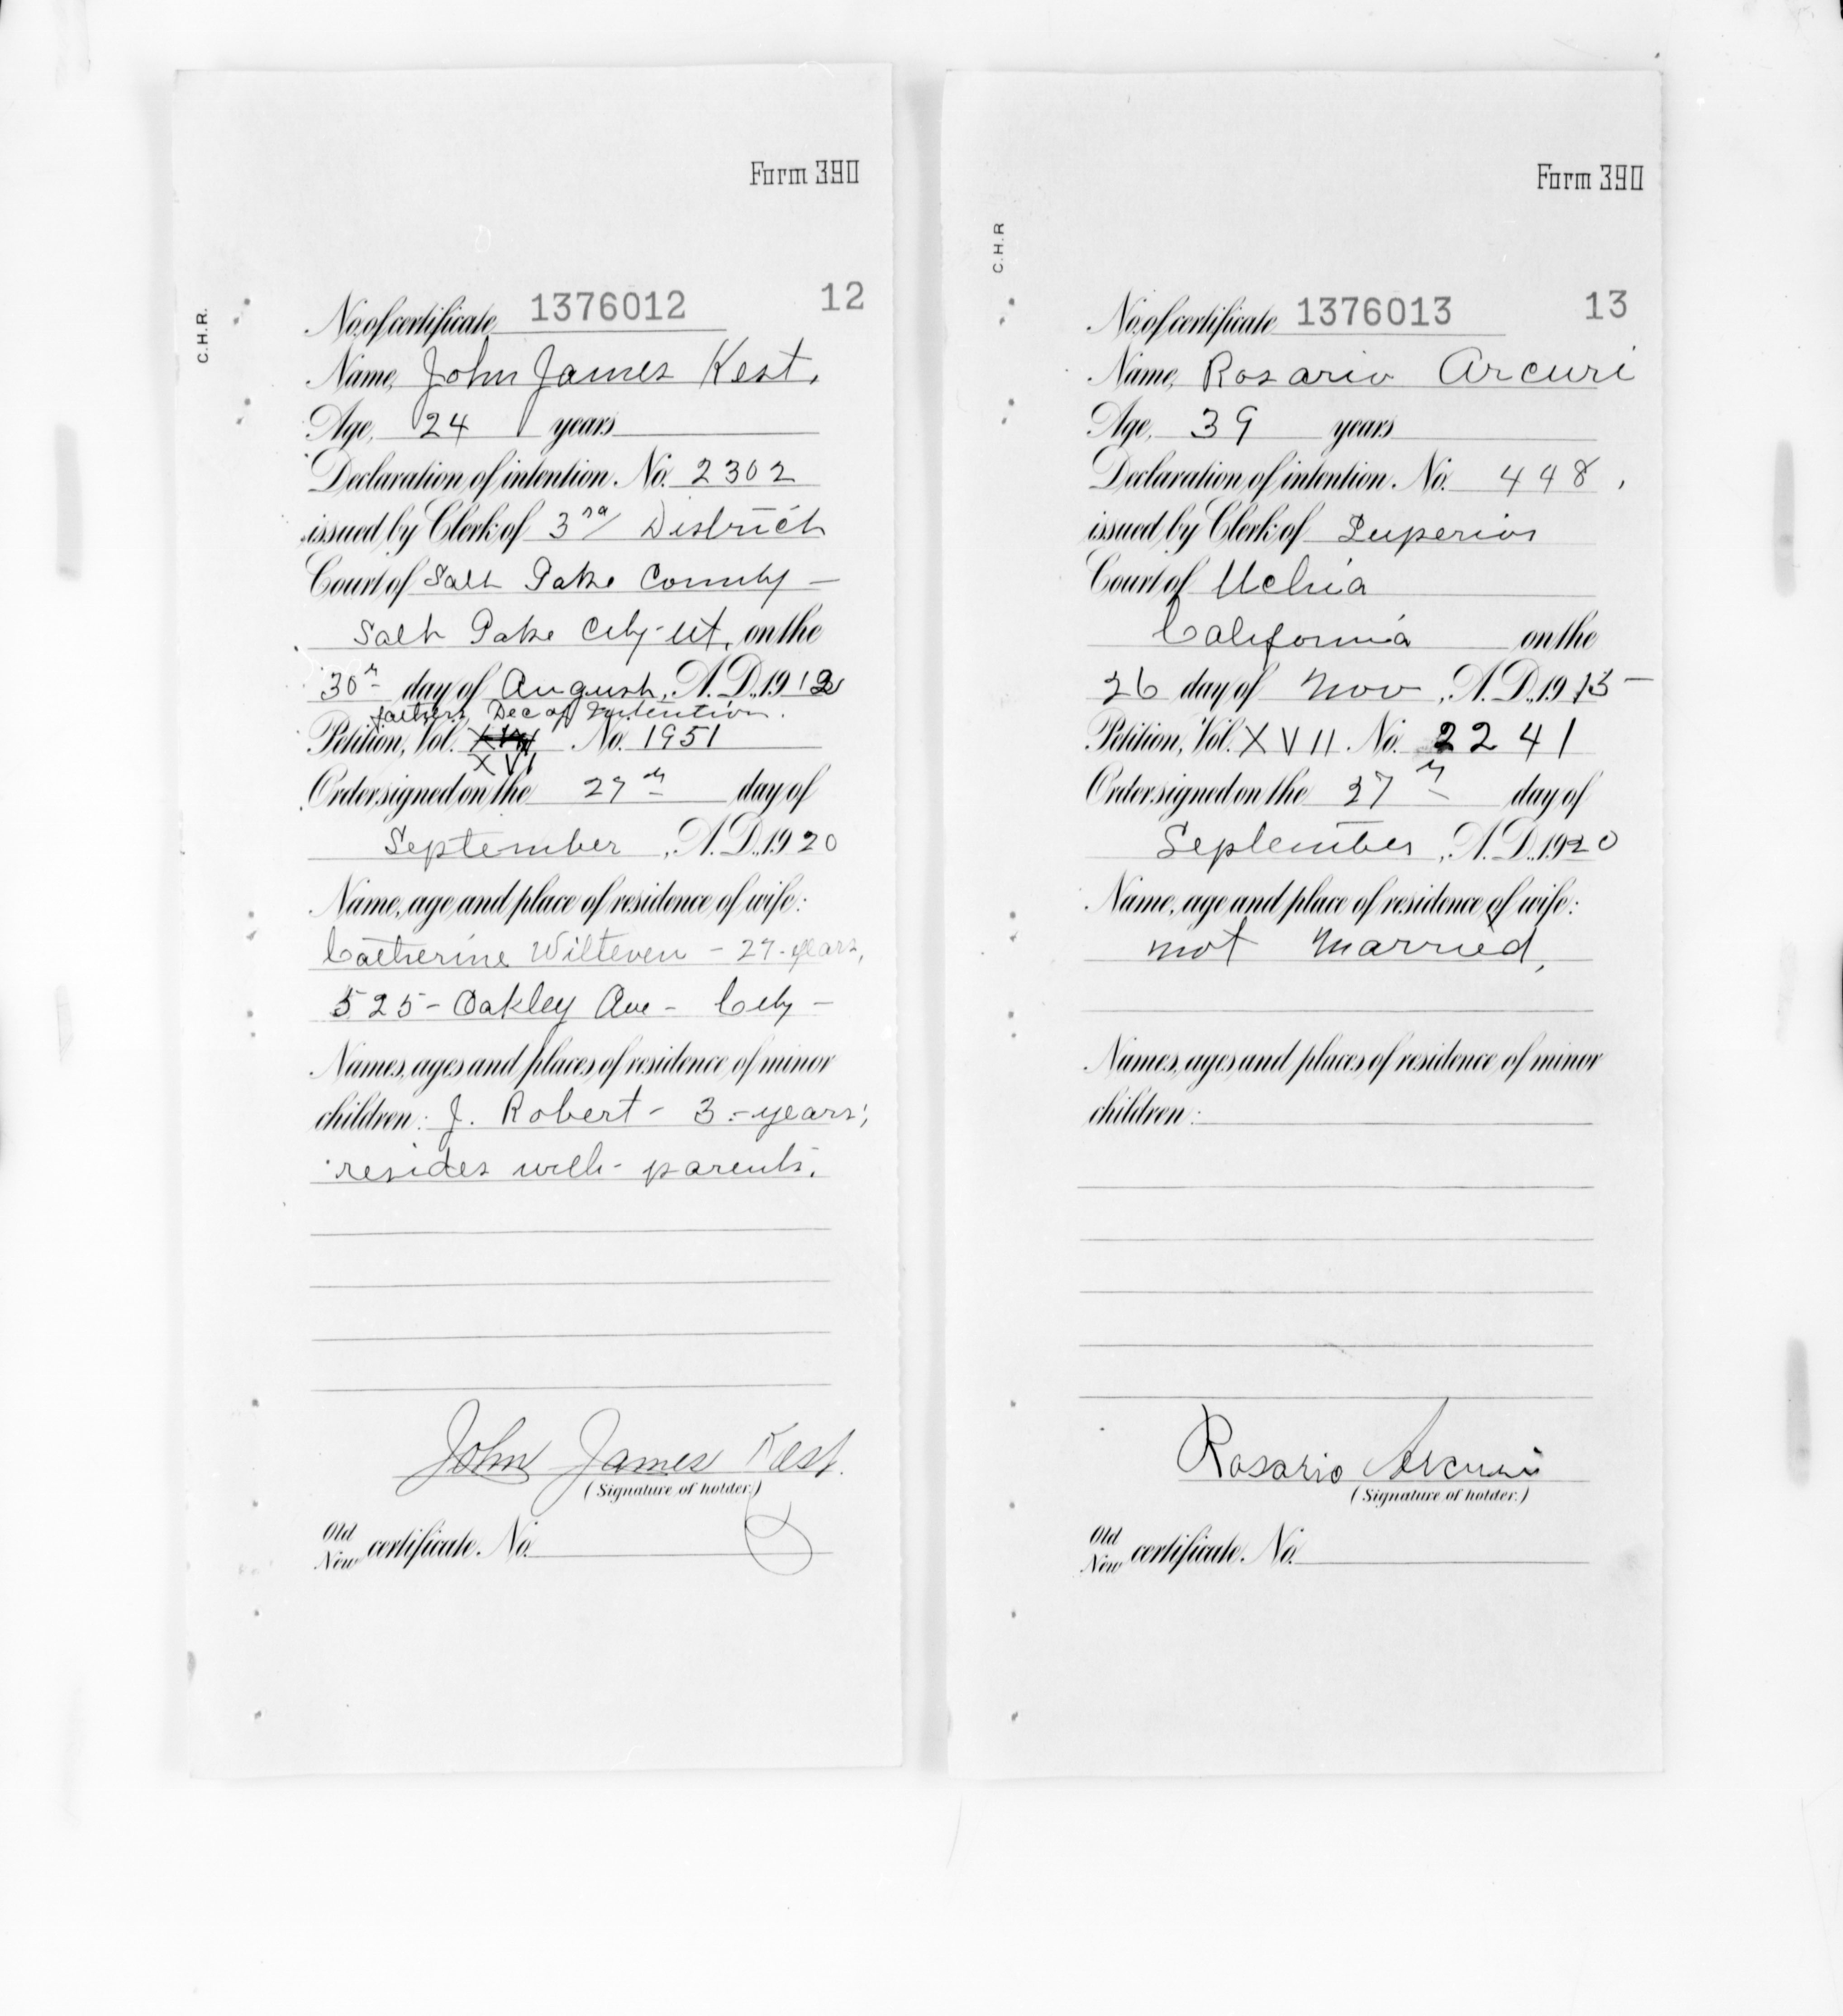 Form 390
C.H.R.
No. of certificate, 1376012 12
Name, John James Kest.
Age, 24 years
Declaration of intention, No. 2302
issued by Clerk of 3rd District
Court of Salt Lake County —
Salt Lake City - Ut. on the
30th day of August, A.D., 1912
fathers Dec of Intention.
Petition, Vol. XVI No. 1951
Order signed on the 27th day of
September, A.D., 1920
Name, age and place of residence of wife:
Catherine Wilteven - 27 - years,
525 - Oakley Ave - City -
Names, ages and places of residence of minor
children: J. Robert - 3 - years;
resides with - parents.
John James Kest.
(Signature of holder.)
Old
New certificate, No.
Form 390
C.H.R
No. of certificate, 1376013 13
Name, Rosario Arcuri
Age, 39 years
Declaration of intention, No. 448,
issued by Clerk of Superior
Court of Uchia
California on the
26 day of Nov, A.D., 1915 -
Petition, Vol. XVII No. 2241
Order signed on the 27th day of
September, A.D., 1920
Name, age and place of residence of wife:
not married,
Names, ages and places of residence of minor
children:
Rosario Arcuri
(Signature of holder.)
Old
New certificate, No.